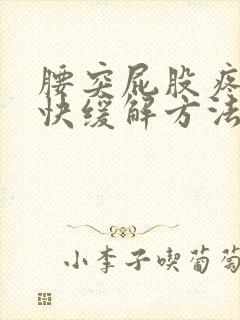 腰突屁股疼
快缓解方法
小李子喫葡萄